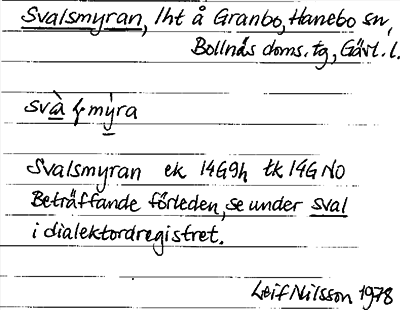 Svalsmyran, lht å Granbo, Hanebo sn,
Bollnäs doms. tg, Gävl. l.
Svalsmyran ek 14G9h tk 14G NO
Beträffande förleden, se under sval
i dialektordregistret.
Leif Nilsson 1978